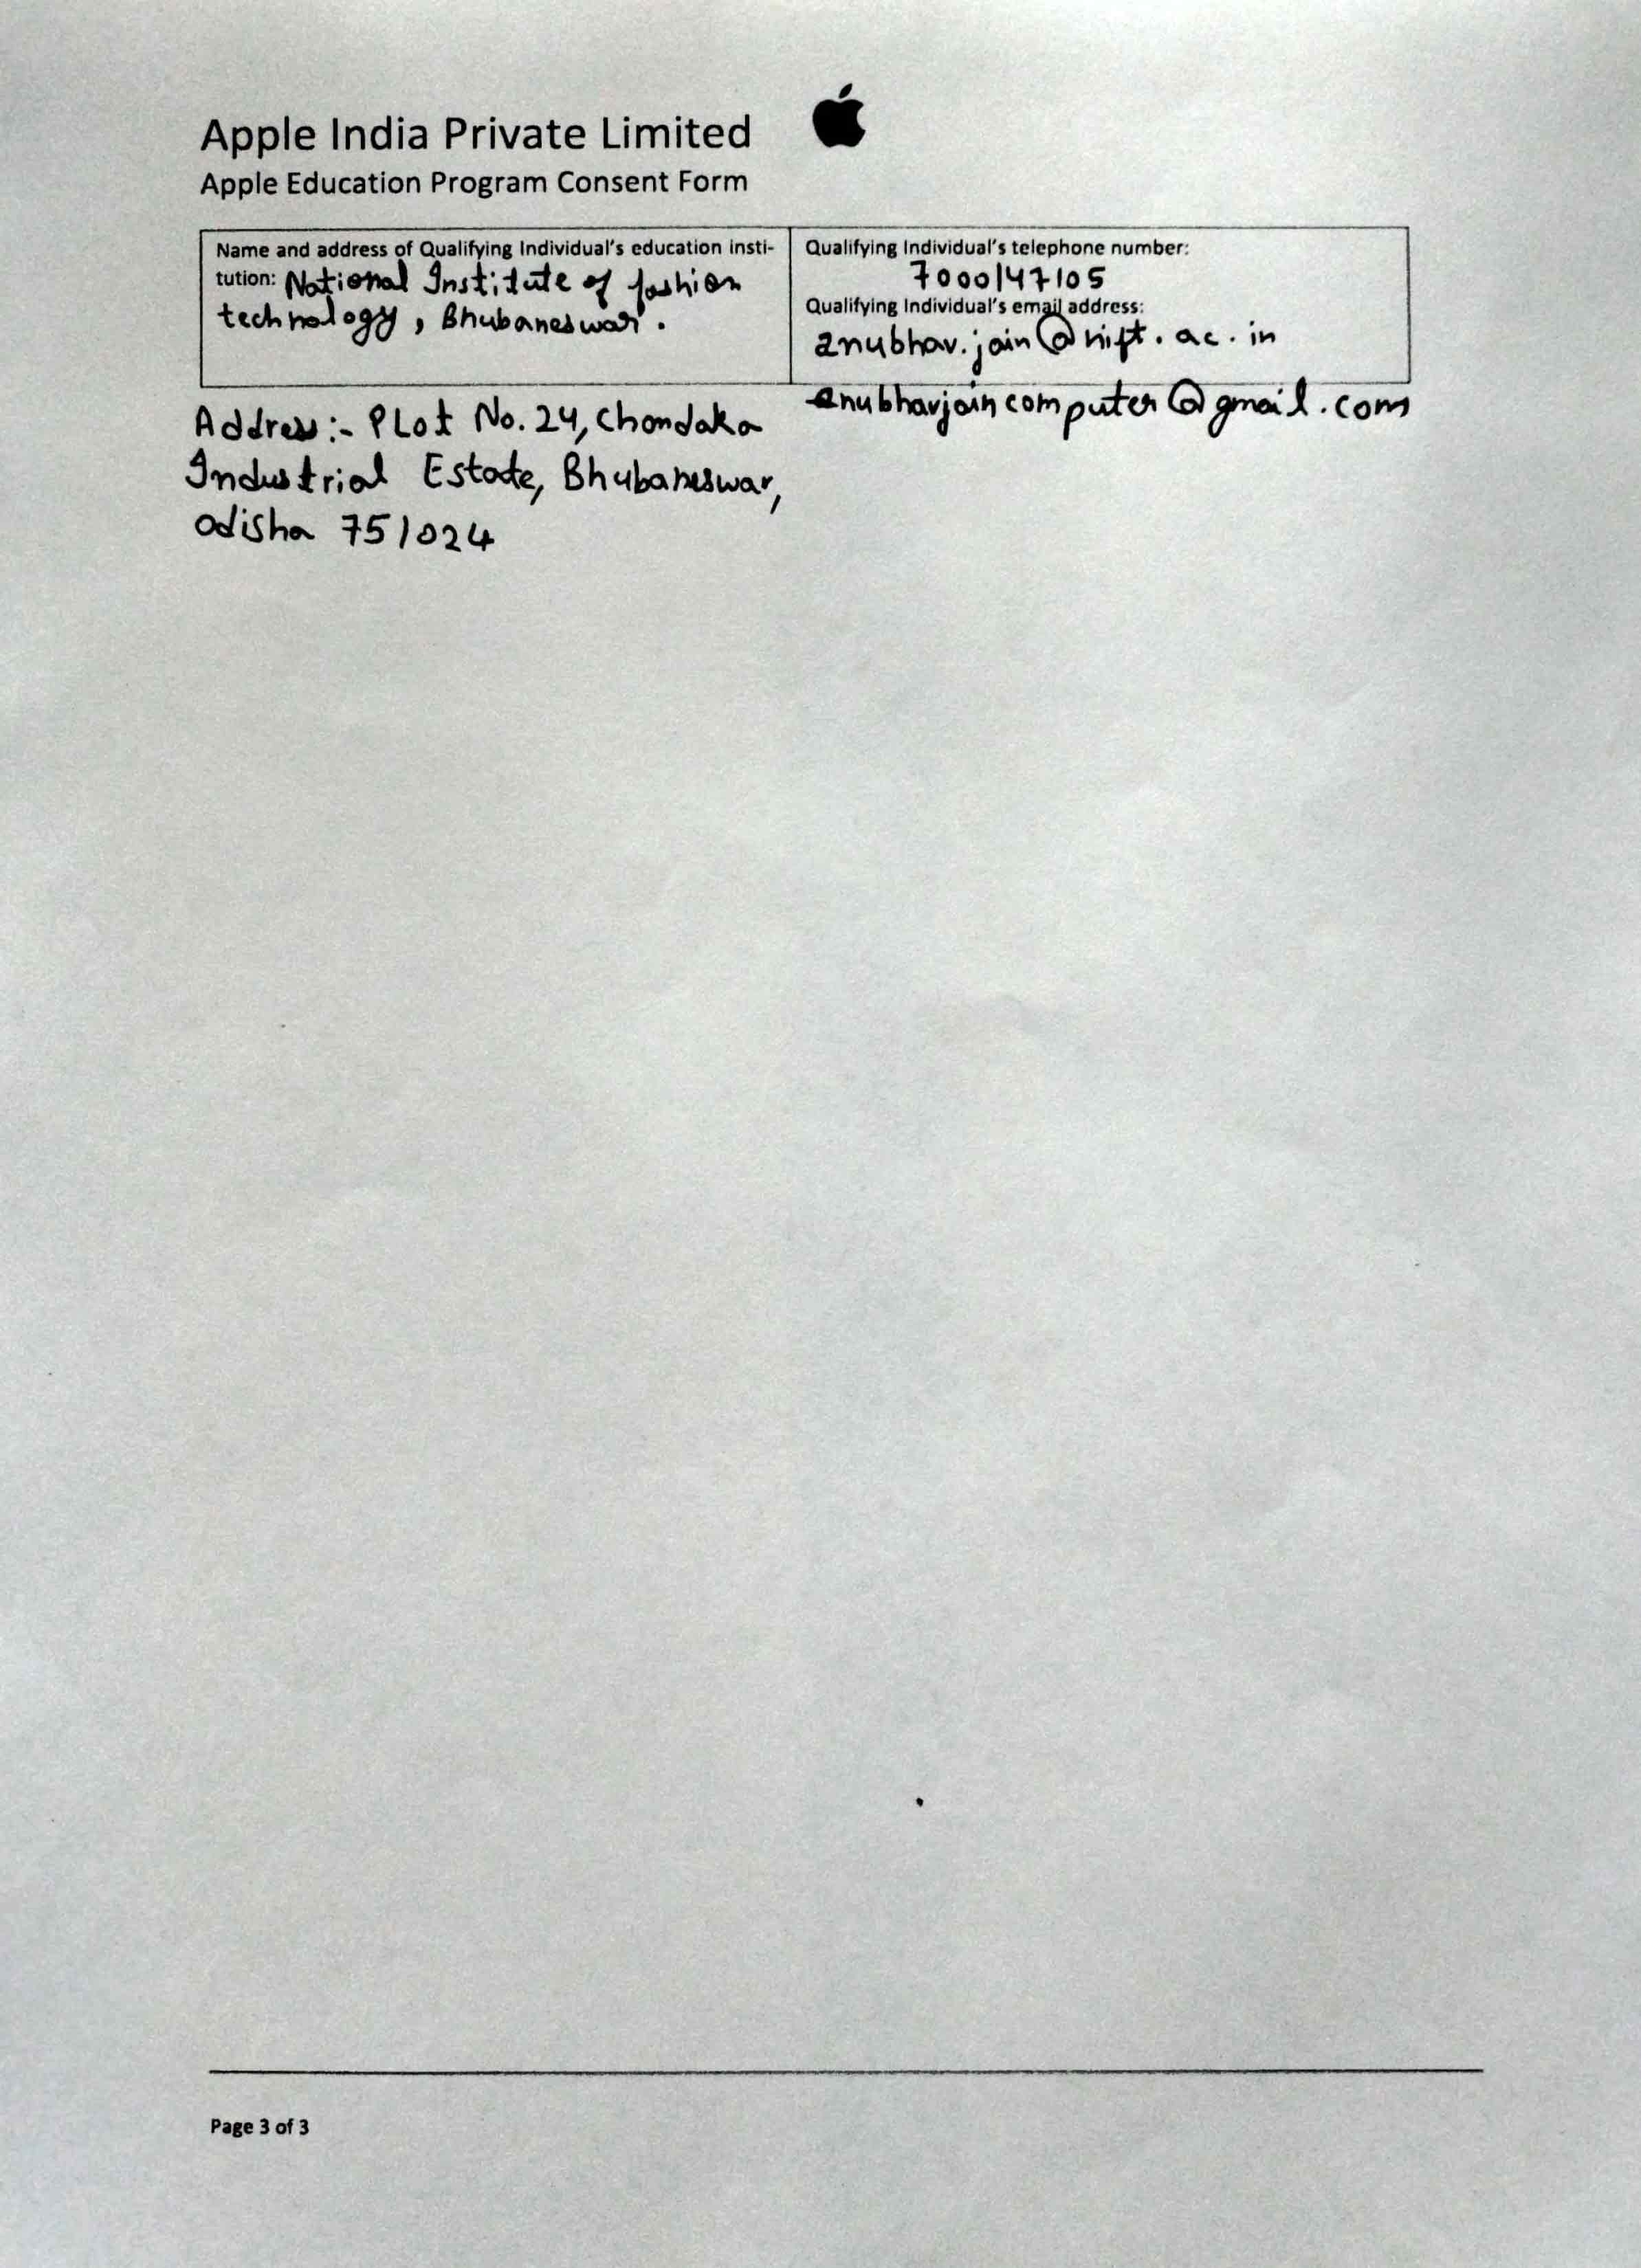 Apple India Private Limited
Apple Education Program Consent Form
Name and address of Qualifying Individual's education insti-
tution: National Institute of fashion
technology, Bhubaneswar.
Qualifying Individual's telephone number:
7000147105
Qualifying Individual's email address:
anubhav.jain@nift.ac.in
anubhavjaincomputer@gmail.com
Address:- PLot No. 24, Chandaka
Industrial Estate, Bhubaneswar,
odisha 751024
Page 3 of 3